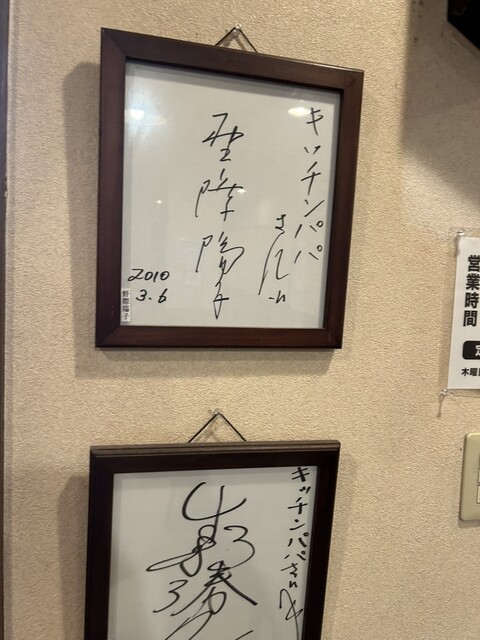 キッチンパパ
さん江
野際陽子
2010
3.6
野際陽子
キッチンパパさん
営業時間
定
木曜日